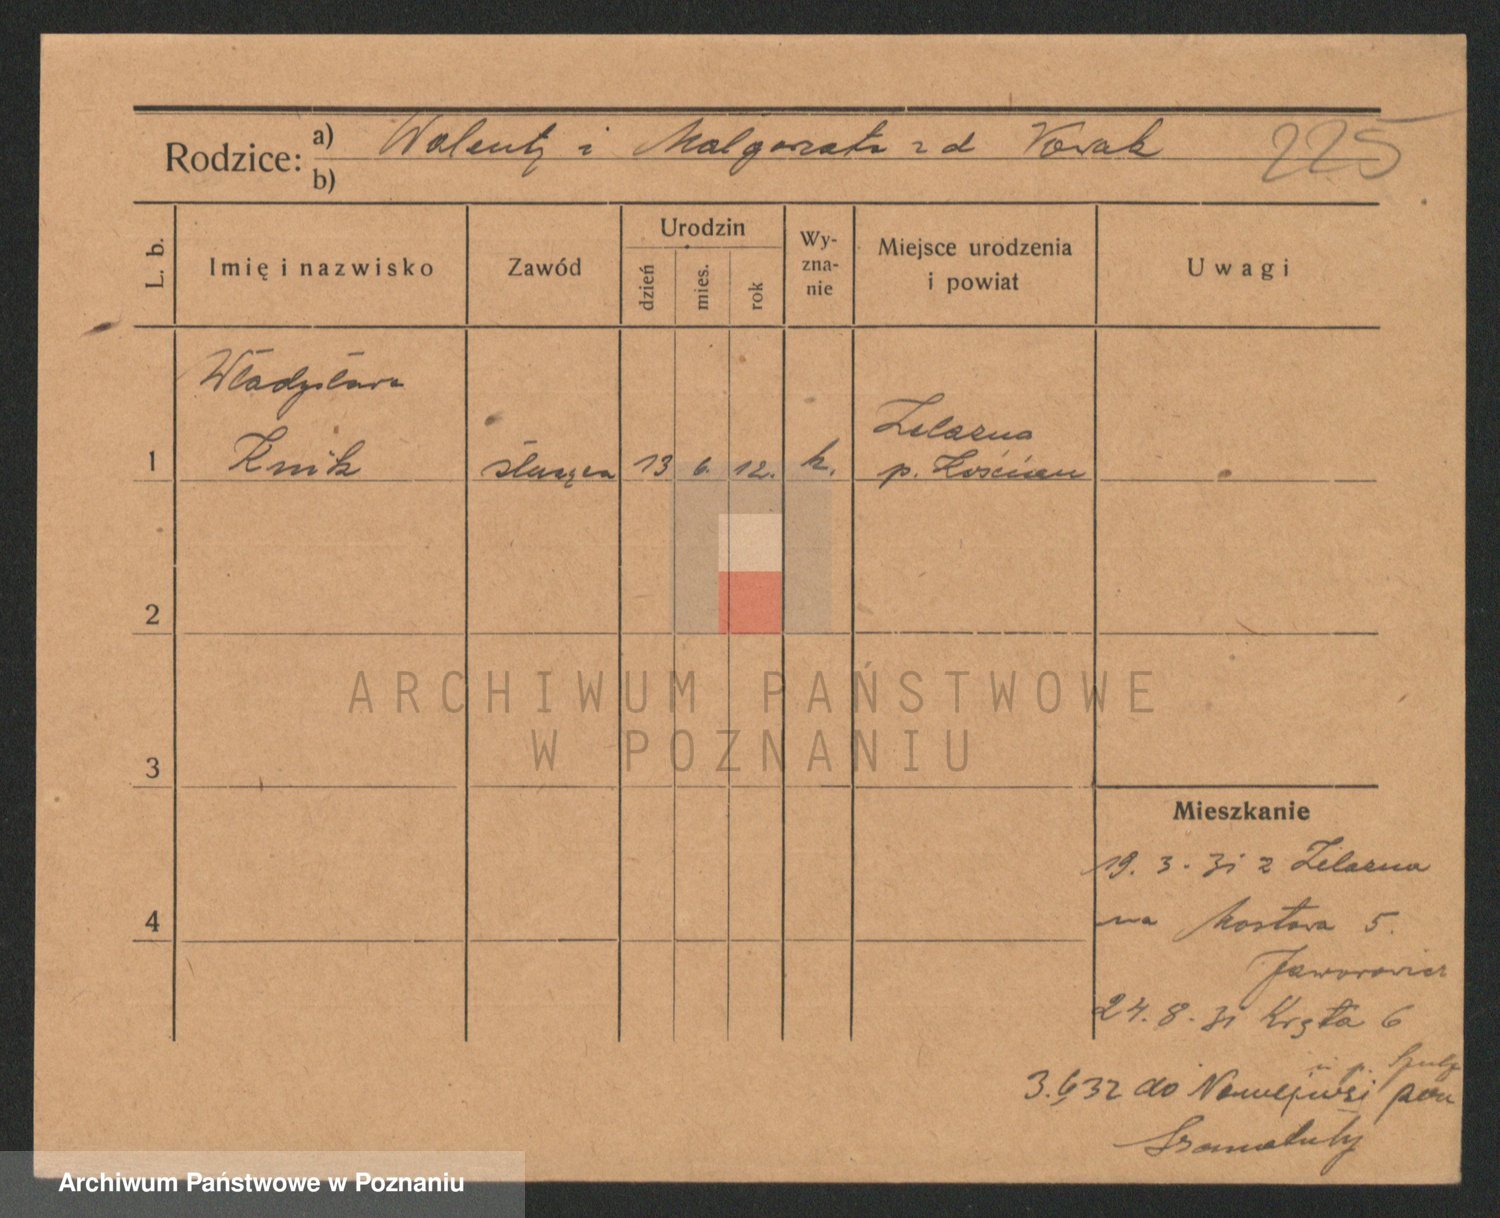 Rodzice: a) Walenty i Małgorzata z d Nowak 225
b)
L. b. Imię i nazwisko Zawód Urodzin dzień mies. rok Wy-zna-nie Miejsce urodzenia i powiat Uwagi
Władysława
Żelazna
1 Knik służąca 13 6. 12. k. p. Kościan
2
ARCHIWUM PAŃSTWOWE
W POZNANIU
3
Mieszkanie
19. 3. 31 z Żelazna
4 na Mostowa 5.
Jaworowicz
24. 8. 31 Kręta 6
u p.
3.6 32 do pow
Szamotuły
Archiwum Państwowe w Poznaniu